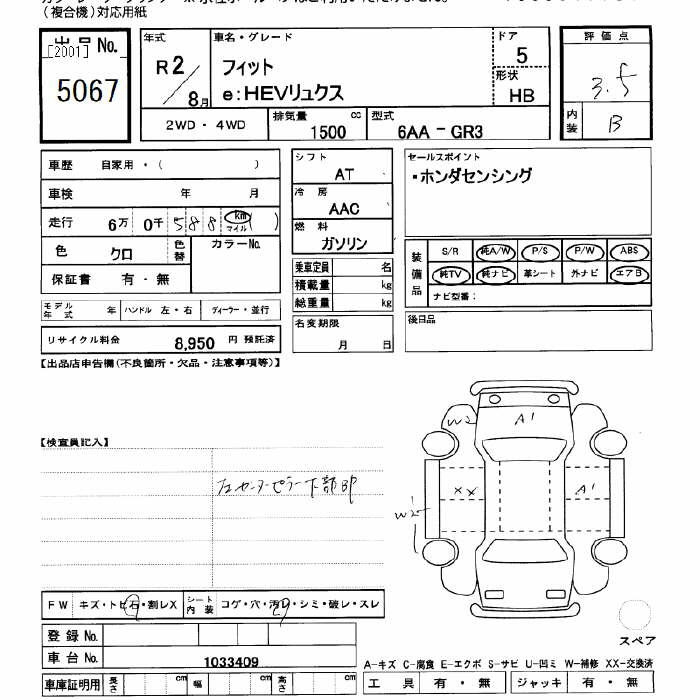 (複合機)対応用紙
出品 No.
[2001]
5067
年式
R2/8月
車名・グレード
フィット
e:HEVリュクス
ドア
5
形状
HB
評価点
3.5
内装
B
2WD・4WD
排気量
1500 cc
型式
6AA-GR3
車歴 自家用・( )
車検 年 月
走行 6万 0千 588 km マイル ( )
色 クロ
色替
カラーNo.
保証書 有・無
モデル年式 年
ハンドル 左・右
ディーラー・並行
リサイクル料金 8,950 円 預託済
シフト
AT
冷房
AAC
燃料
ガソリン
乗車定員 名
積載量 kg
総重量 kg
名変期限
月 日
セールスポイント
・ホンダセンシング
装備品
S/R 純A/W P/S P/W ABS
純TV 純ナビ 革シート 外ナビ エアB
ナビ型番:
後日品
【出品店申告欄(不良箇所・欠品・注意事項等)】
【検査員記入】
左センターピラー下部BP
W2
A1
XX
A1
W2
FW キズ・トビ石・割レX
シート内装 コゲ・穴・汚レ・シミ・破レ・スレ
登録 No.
車台 No. 1033409
車庫証明用 長さ cm 幅 cm 高さ cm
スペア
A-キズ C-腐食 E-エクボ S-サビ U-凹ミ W-補修 XX-交換済
工具 有・無 ジャッキ 有・無